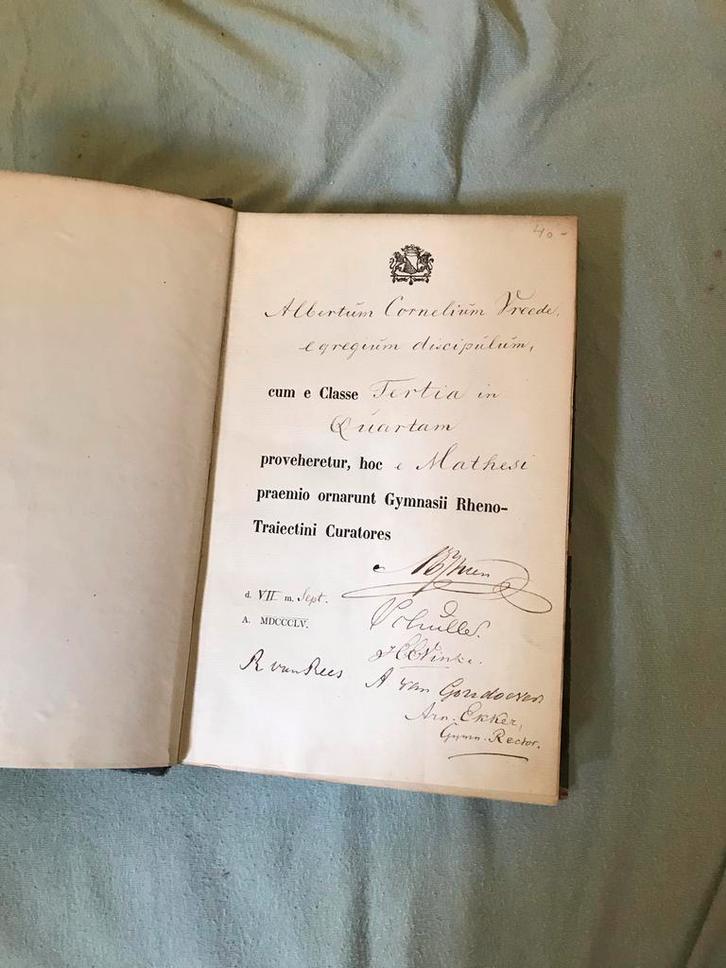 40-
Albertum Cornelium Vreede,
egregium discipulum,
cum e Classe Tertia in
Quartam
proveheretur, hoc e Mathesi
praemio ornarunt Gymnasii Rheno-
Traiectini Curatores
d. VII m. Sept.
A. MDCCCLV.
R van Rees
A van Goudoever
Arn. Ekker,
Gymn. Rector.